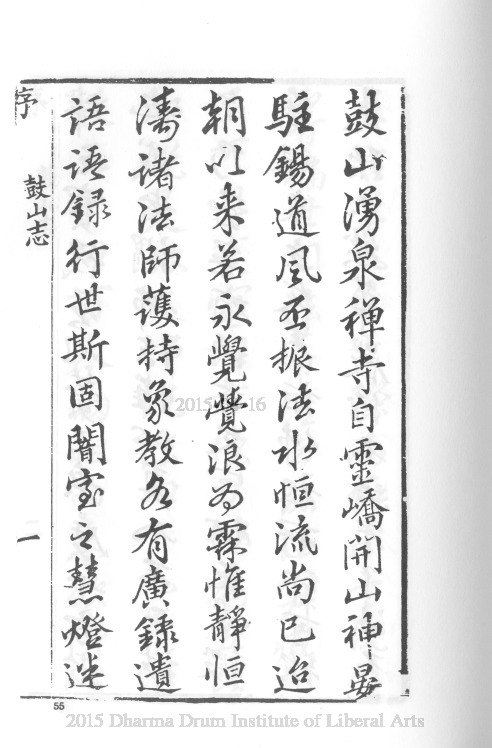 鼓山湧泉禪寺自靈嶠開山神晏
駐錫道風丕振法水恒流尚已迨
朝以来若永覺覺浪為霖惟靜恒
濤諸法師護持象教各有廣録遺
語語録行世斯固闇室之慧燈迷
序
鼓山志
一
55
2015 Dharma Drum Institute of Liberal Arts